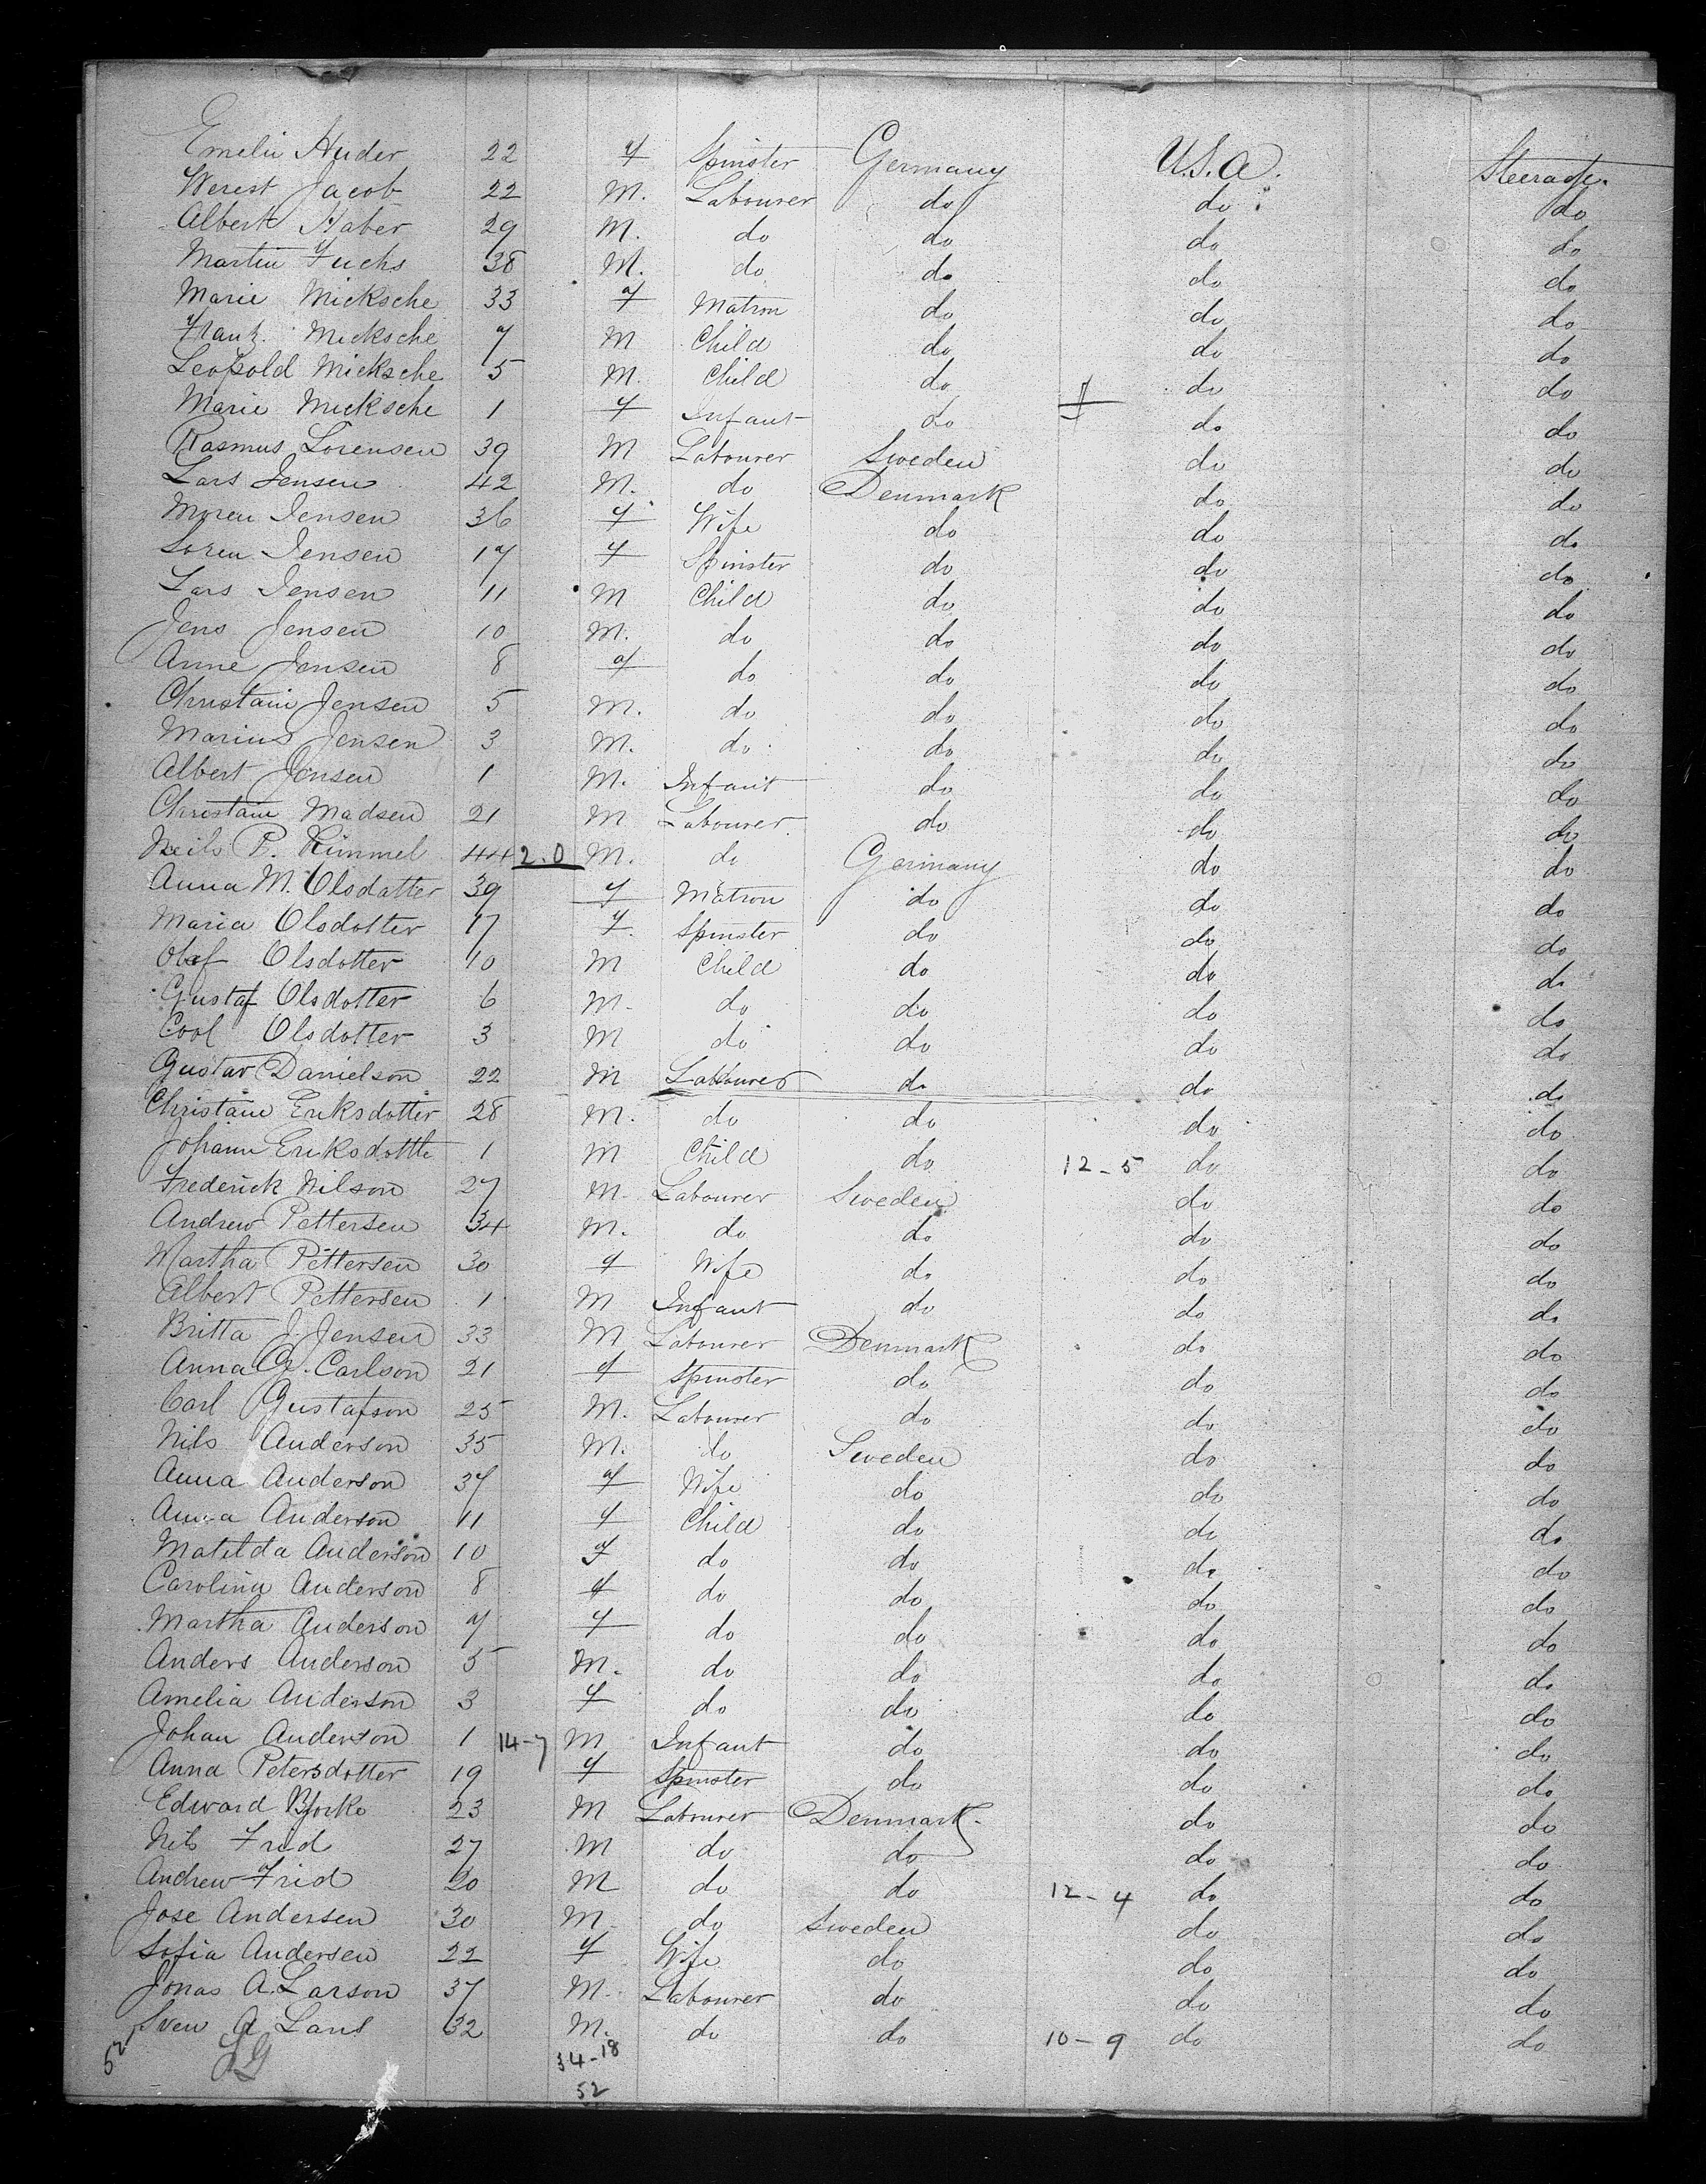 Emelie Huder 22 F Spinster Germany U.S.A. Steerage.
Werest Jacob 22 M. Labourer do do do
Albert Haber 29 M. do do do do
Martin Fuchs 38 M. do do do do
Marie Micksche 33 F Matron do do do
Frantz Micksche 7 M Child do do do
Leopold Micksche 5 M. Child do do do
Marie Micksche 1 F Infant do do do
Rasmus Lorensen 39 M Labourer Sweden do do
Lars Jensen 42 M. do Denmark do do
Moren Jensen 36 F Wife do do do
Soren Jensen 17 F Spinster do do do
Lars Jensen 11 M Child do do do
Jens Jensen 10 M. do do do do
Anne Jensen 8 F do do do do
Christain Jensen 5 M. do do do do
Marius Jensen 3 M. do do do do
Albert Jensen 1 M. Infant do do do
Christain Madsen 21 M Labourer. do do do
Neils P. Himmel 44 2.0 M. do Germany do do
Anna M. Olsdatter 39 F Matron do do do
Maria Olsdotter 17 F. Spinster do do do
Olaf Olsdotter 10 M Child do do do
Gustaf Olsdotter 6 M. do do do do
Cool Olsdotter 3 M do do do do
Gustav Danielson 22 M Labourer do do do
Christain Eriksdotter 28 M. do do do do
Johann Eriksdottle 1 M Child do 12-5 do do
Frederick Nilson 27 M. Labourer Sweden do do
Andrew Pettersen 34 M. do do do do
Martha Pettersen 30 F Wife do do do
Albert Pettersen 1 M Infant do do do
Britta J. Jensen 33 M Labourer Denmark do do
Anna G. Carlson 21 F Spinster do do do
Carl Gustafson 25 M. Labourer do do do
Nils Anderson 35 M. do Sweden do do
Anna Anderson 37 F Wife do do do
Anna Anderson 11 F Child do do do
Matilda Anderson 10 F do do do do
Carolina Anderson 8 F do do do do
Martha Anderson 7 F do do do do
Anders Anderson 5 M. do do do do
Amelia Anderson 3 F do do do do
Johan Anderson 1 14-7 M Infant do do do
Anna Petersdotter 19 F Spinster do do do
Edward Bjorko 23 M Labourer Denmark. do do
Nils Frid 27 M do do do do
Andrew Frid 20 M do do 12-4 do do
Jose Andersen 30 M do Sweden do do
Sofia Andersen 22 F Wife do do do
Jonas A. Larson 37 M. Labourer do do do
Sven A Lans 32 M. do do 10-9 do do
52 34-18
52